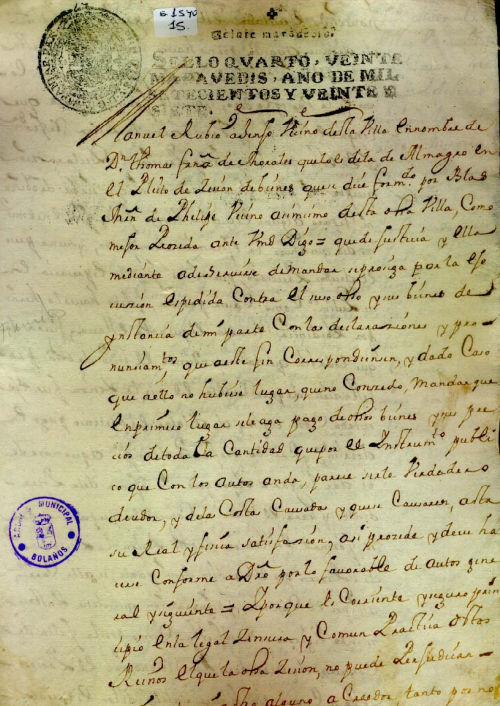 E 1540
15.
Veinte maravedis.
SELLO QVARTO, VEINTE
MARAVEDIS, AÑO DE MIL
SETECIENTOS Y VEINTE Y
SIETE.
Manuel Rubio Vecino desta Villa Ennombre de
Dn. Thomas de Morales que lo es de la de Almagro en
El Pleito de Zesion de bienes que se dice form.do por Blas
de Phelipe Vecino asimismo desta dha Villa, Como
mejor Proceda ante Vmd Digo = que de Justicia y Ella
mediante a de seruirse de Mandar se prosiga por la Ese
cusion espedida Contra El suso dho y sus bienes de
ynstancia de mi parte Con las declarasiones y pro
nunsiam.tos que a este fin Correspondiesen, y dado Caso
que a ello no hubiese lugar, que no Consedo, Mandar que
En primero lugar se le aga pago de dhos bienes y sus pre
cios de toda la Cantidad que por el Instrum.to publi
co que Con los autos anda, parece serle Verdadero
deudor, y de la Costas Causadas y que se Causaren, asta
su Real y fisica satisfasion, asi prosede y deue ha
cerse Conforme a Dro por lo favorable de autos gene
ral y siguiente = Y Porque Es Corriente y seguro prin
cipio En la legal Zensura y Comun Practica destos
Reinos El que la dha Zesion, no puede Perjudicar
alguno a Creedor, tanto por no
ARCHIVO MUNICIPAL
BOLAÑOS